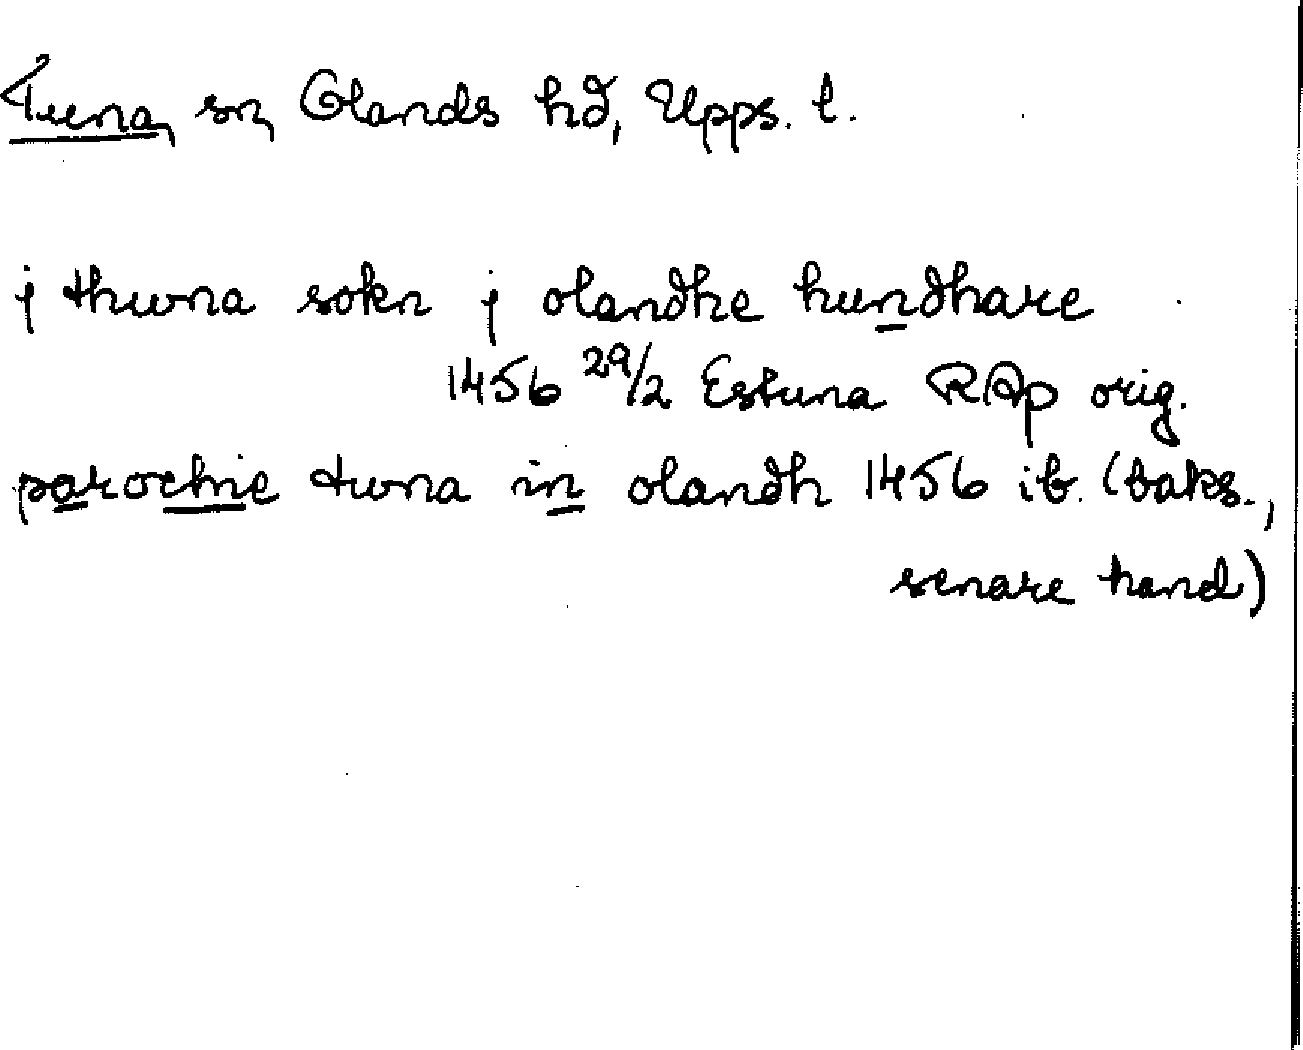 Tuna, sn, Olands hd, Upps. l.
j thwna sokn j olandhe hundhare
1456 29/2 Estuna RAp orig.
parochie twna in olandh 1456 ib. (baks.,
senare hand)